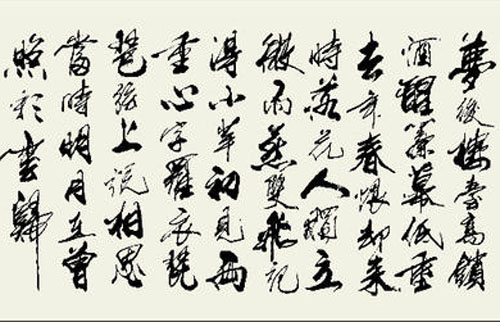 夢後樓臺高鎖
酒醒簾幕低垂
去年春恨却来
時落花人獨立
微雨燕雙飛記
得小苹初見兩
重心字羅衣琵
琶弦上說相思
當時明月在曾
照彩雲歸